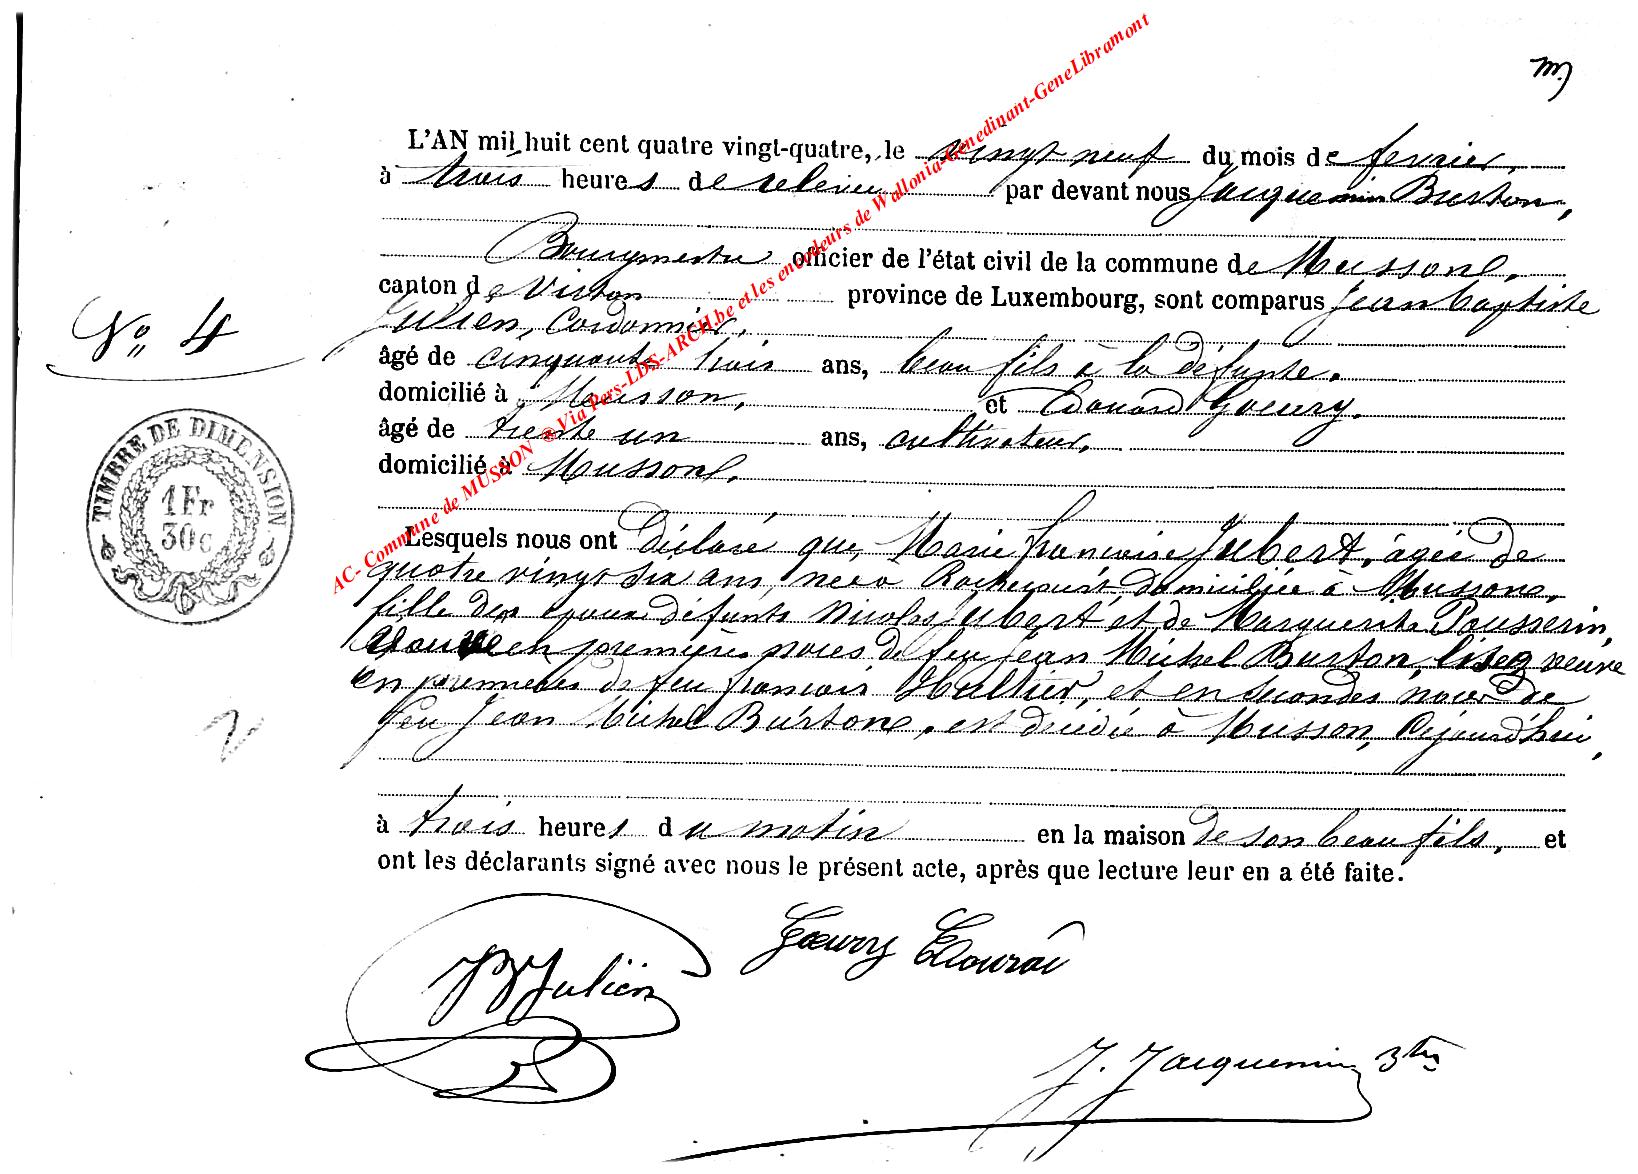 m
L'AN mil huit cent quatre vingt-quatre, le vingt neuf du mois de fevrier,
à trois heures de relevée par devant nous Jacquemin Burton,
Bourgmestre officier de l'état civil de la commune de Musson,
canton de Virton province de Luxembourg, sont comparus Jean baptiste
Julien, Cordonnier,
No 4
âgé de cinquante trois ans, beau fils à la défunte.
domicilié à Musson, et Edouard Goeury.
âgé de trente un ans, cultivateur,
domicilié à Musson.
TIMBRE DE DIMENSION
1 Fr
30 c
Lesquels nous ont Déclaré que, Marie françoise Jubert, agée de
quatre vingt six ans, née à domiciliée à Musson,
fille des epoux défunts Nicolas Jubert et de Marguerite Pousserin,
veuve en premières noces de feu Jean Michel Burton, lisez veuve
en premières de feu françois et en secondes noces de
feu Jean Michel Burton, est décédée à Musson, Cejourd'hui,
2
à trois heures du matin en la maison de son beau fils, et
ont les déclarants signé avec nous le présent acte, après que lecture leur en a été faite.
JB Julien
Goeury Edourd
J. Jacquemin Btn
AC- Commune de MUSSON ® Via Pers-LDS-ARCH.be et les encodeurs de Wallonia-Genedinant-GeneLibramont